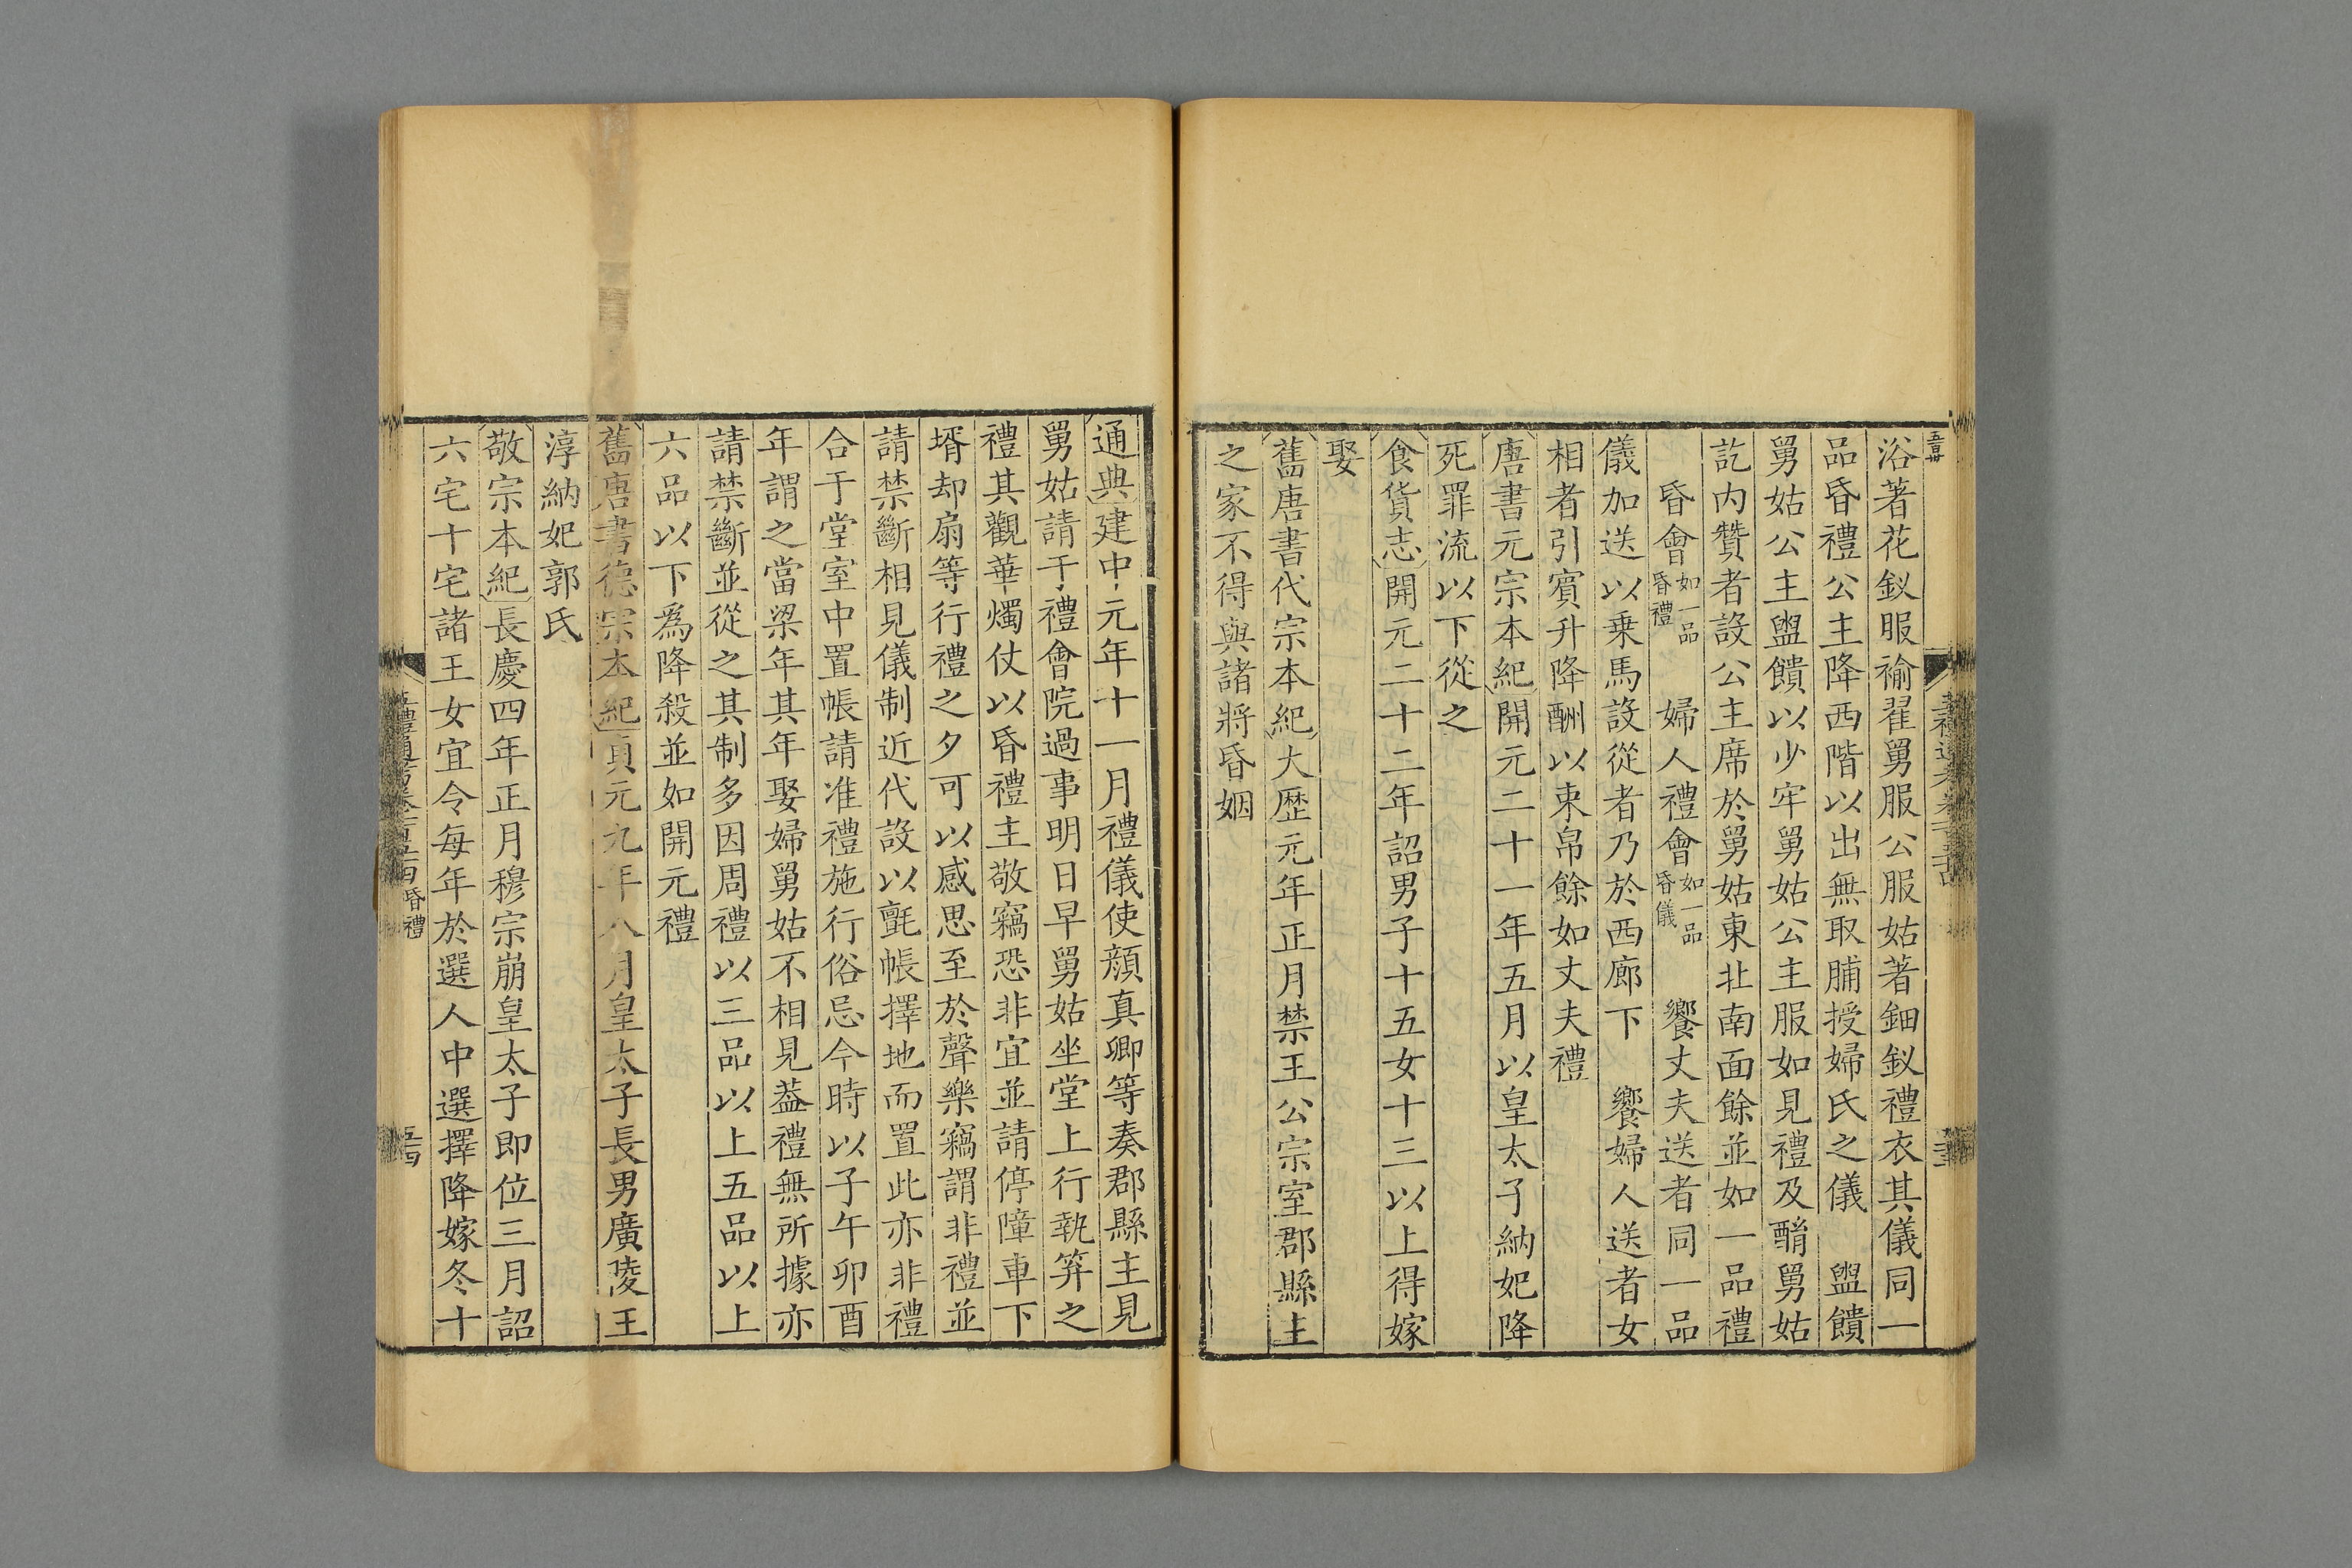 浴著花釵服褕翟舅服公服姑著鈿釵禮衣其儀同一
品昏禮公主降西階以出無取脯授婦氏之儀 盥饋
舅姑公主盥饋以少牢舅姑公主服如見禮及酳舅姑
訖内贊者設公主席於舅姑東北南面餘並如一品禮
昏會如一品昏禮 婦人禮會如一品昏儀 饗丈夫送者同一品
儀加送以乗馬設從者乃於西廊下 饗婦人送者女
相者引賓升降酬以束帛餘如丈夫禮
唐書元宗本紀開元二十一年五月以皇太子納妃降
死罪流以下從之
食貨志開元二十二年詔男子十五女十三以上得嫁
娶
舊唐書代宗本紀大歷元年正月禁王公宗室郡縣主
之家不得與諸將昏姻
通典建中元年十一月禮儀使顔真卿等奏郡縣主見
舅姑請于禮會院過事明日早舅姑坐堂上行執笲之
禮其觀華燭仗以昏禮主敬竊恐非宜並請停障車下
壻却扇等行禮之夕可以感思至於聲樂竊謂非禮並
請禁斷相見儀制近代設以氊帳擇地而置此亦非禮
合于堂室中置帳請准禮施行俗忌今時以子午卯酉
年謂之當梁年其年娶婦舅姑不相見葢禮無所據亦
請禁斷並從之其制多因周禮以三品以上五品以上
六品以下爲降殺並如開元禮
舊唐書德宗本紀貞元九年八月皇太子長男廣陵王
淳納妃郭氏
敬宗本紀長慶四年正月穆宗崩皇太子即位三月詔
六宅十宅諸王女宜令每年於選人中選擇降嫁冬十
五禮通考卷一百五十四 昏禮